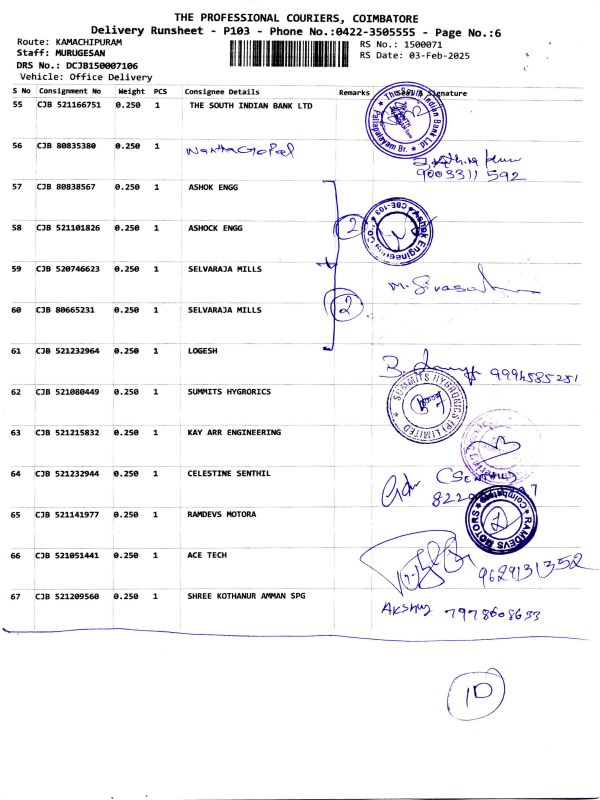 THE PROFESSIONAL COURIERS, COIMBATORE
Delivery Runsheet - P103 - Phone No.:0422-3505555 - Page No.:6
Route: KAMACHIPURAM RS No.: 1500071
Staff: MURUGESAN RS Date: 03-Feb-2025
DRS No.: DCJB150007106
Vehicle: Office Delivery
S No Consignment No Weight PCS Consignee Details Remarks Signature
55 CJB 521166751 0.250 1 THE SOUTH INDIAN BANK LTD
56 CJB 80835380 0.250 1 NanthaGopal
9003311592
57 CJB 80838567 0.250 1 ASHOK ENGG
58 CJB 521101826 0.250 1 ASHOCK ENGG 2
59 CJB 520746623 0.250 1 SELVARAJA MILLS
60 CJB 80665231 0.250 1 SELVARAJA MILLS 2
61 CJB 521232964 0.250 1 LOGESH
9994585251
62 CJB 521080449 0.250 1 SUMMITS HYGRORICS
SUMMITS HYGRONICS (P) LIMITED
63 CJB 521215832 0.250 1 KAY ARR ENGINEERING
64 CJB 521232944 0.250 1 CELESTINE SENTHIL
65 CJB 521141977 0.250 1 RAMDEVS MOTORA
RAMDEVS MOTORS Coimbatore
66 CJB 521051441 0.250 1 ACE TECH 9629131352
67 CJB 521209560 0.250 1 SHREE KOTHANUR AMMAN SPG
7978608633
10